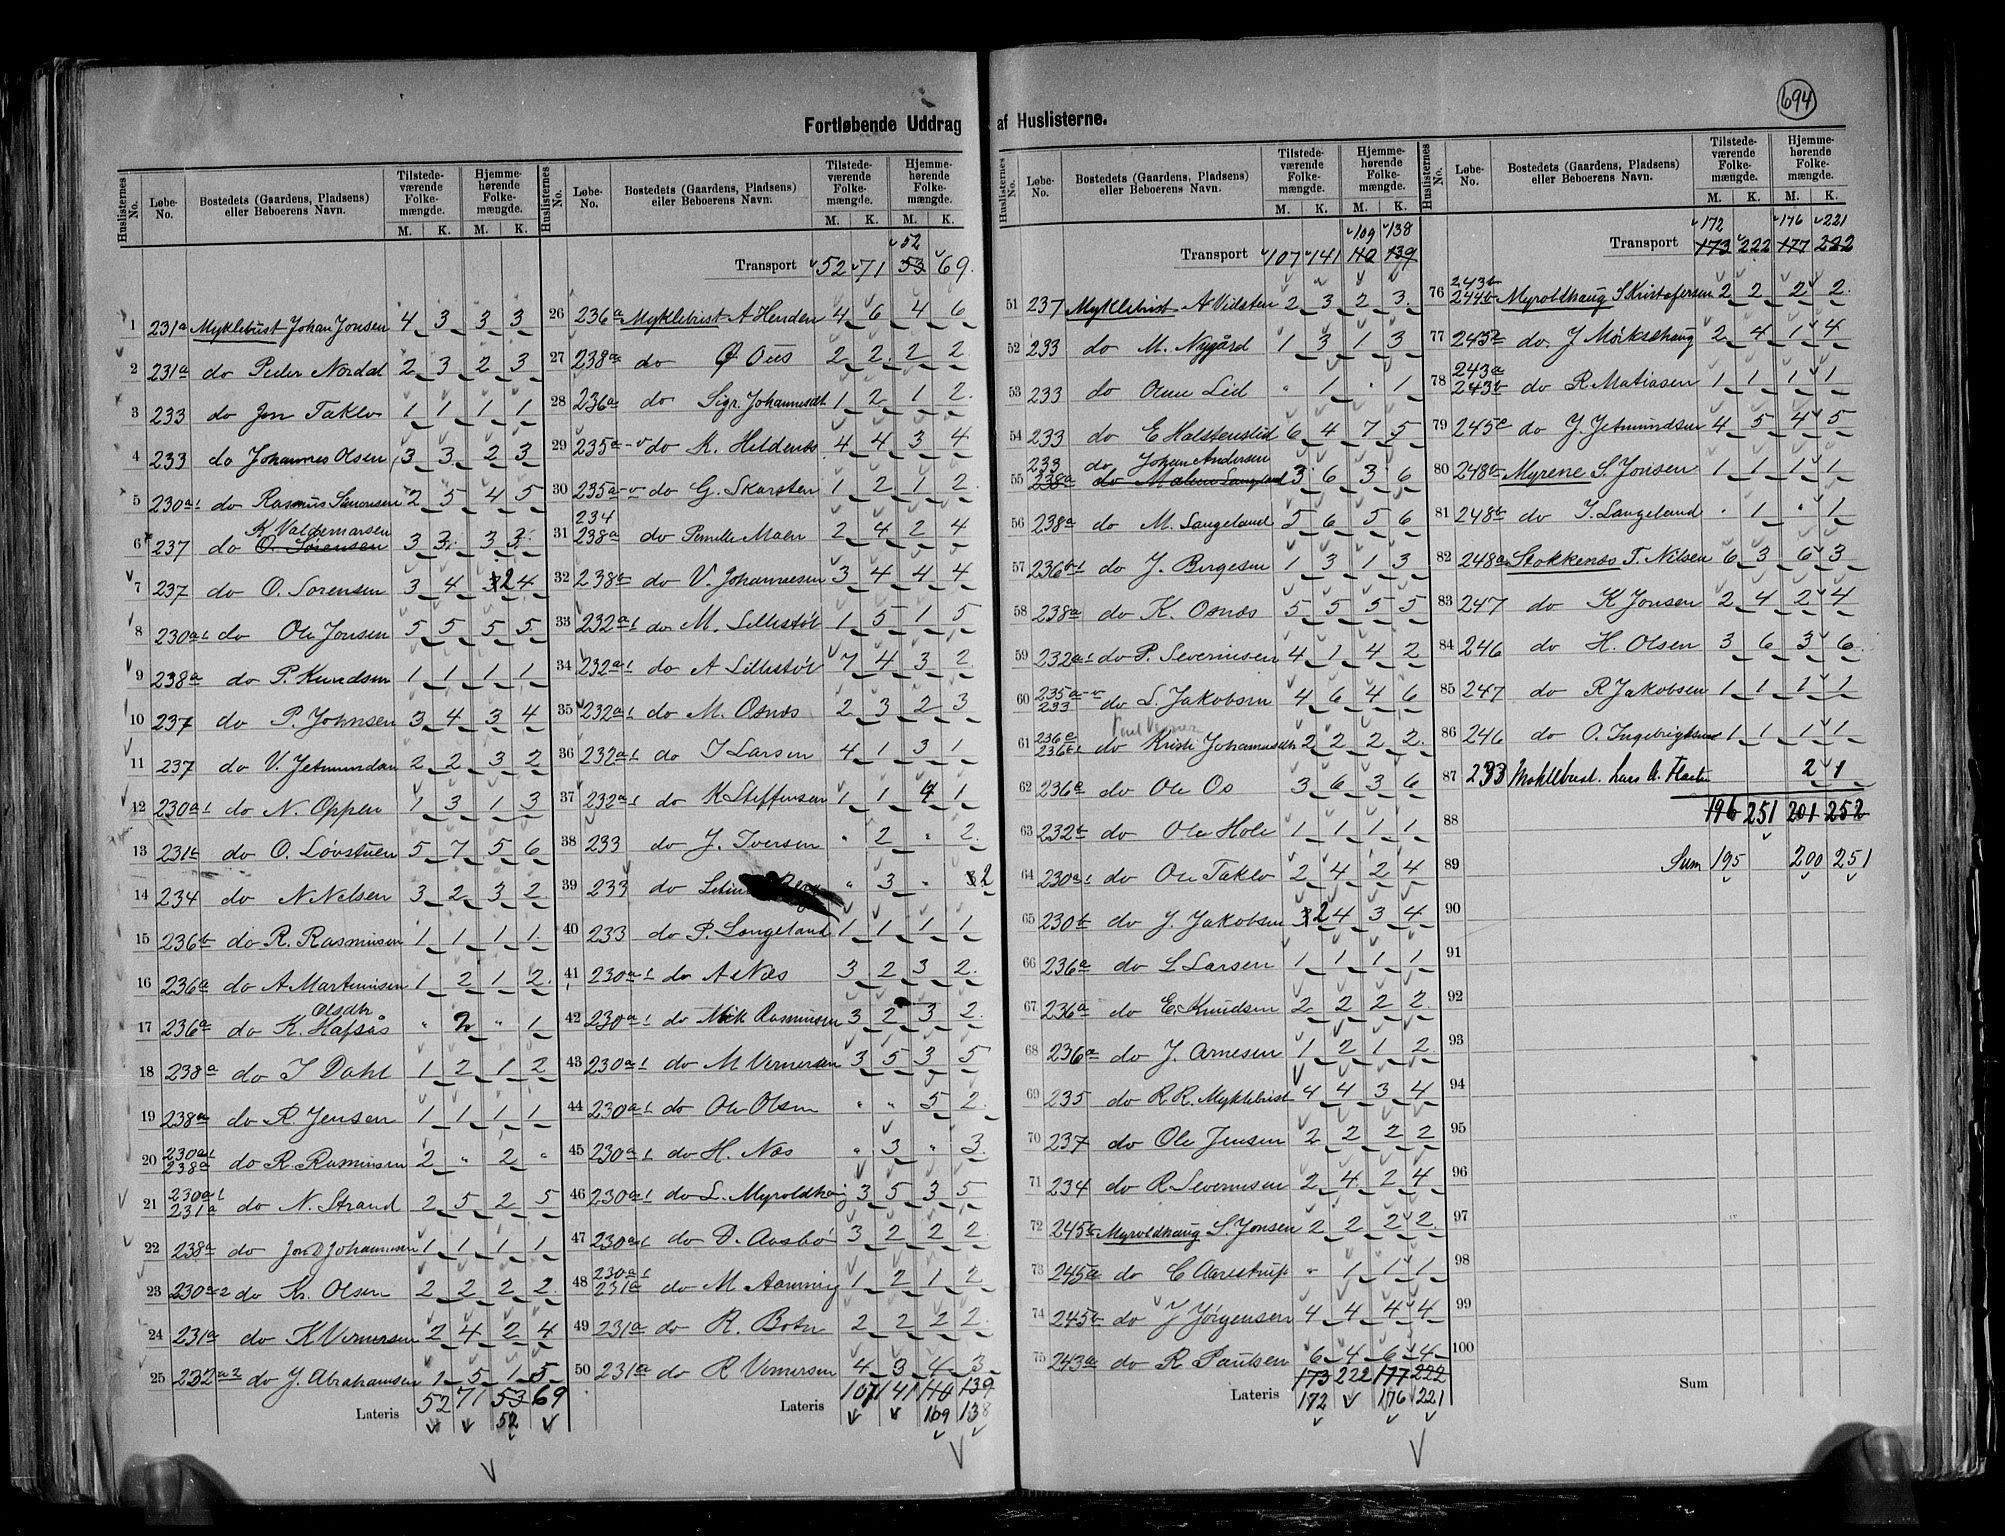 694
Fortløbende Uddrag af Huslisterne.
Huslisternes No. Løbe-No. Bostedets (Gaardens, Pladsens) eller Beboerens Navn. Tilstedeværende Folkemængde. Hjemmehørende Folkemængde.
M. K. M. K.
1 231a Myklebust Johan Jonsen 4 3 3 3
2 231a do Peder Nordal 2 3 2 3
3 233 do Jon Taklo 1 1 1 1
4 233 do Johannes Olsen 3 3 2 3
5 230a1 do Rasmus Simonsen 2 5 4 5
K Valdemarsen
6 237 do O. Sørensen 3 3 3 3
7 237 do O. Sørensen 3 4 2 4
8 230a1 do Ole Jonsen 5 5 5 5
9 238a do P. Knudsen 1 1 1 1
10 237 do P. Johnsen 3 4 3 4
11 237 do V. Jetmundsen 2 2 3 2
12 230a1 do N. Oppen 1 3 1 3
13 231a do O. Løvstuen 5 7 5 6
14 234 do N Nelsen 3 2 3 2
15 236b do R. Rasmusen 1 1 1 1
16 236a do A Martinusen 1 2 1 2
Olsdtr
17 236a do K. Hafsås " 2 " 1
18 238a do I Dahl 1 2 1 2
19 238a do R. Jensen 1 1 1 1
20 230a1 238a do R. Rasmusen 2 " 2 "
21 230a1 231a do N. Strand 2 5 2 5
22 238a do Jon D Johannesen 1 1 1 1
23 230a2 do Kr. Olsen 2 2 2 2
24 231a do K Vernersen 2 4 2 4
25 232a2 do J. Abrahamsen 1 5 1 5
Lateris 52 71 53 69
52
Huslisternes No. Løbe-No. Bostedets (Gaardens, Pladsens) eller Beboerens Navn. Tilstedeværende Folkemængde. Hjemmehørende Folkemængde.
M. K. M. K.
52
Transport 52 71 53 69.
26 236a Myklebust A Henden 4 6 4 6
27 238a do Ø Oús 2 2 2 2
28 236a do Sigr. Johannesdt 1 2 1 2
29 235a-v do K. Heldenes 4 4 3 4
30 235a-v do G. Skarsten 1 2 1 2
31 234 238a do Pernille Maln 2 4 2 4
32 238a do V. Johannesen 3 4 4 4
33 232a1 do M. Lillestøl 1 5 1 5
34 232a1 do A Lillestøl 7 4 3 2
35 232a1 do M. Osnes 2 3 2 3
36 232a1 do I Larsen 4 1 3 1
37 232a1 do K Steffensen 1 1 4 1
38 233 do J. Iversen " 2 " 2
39 233 do " 3 " 2
40 233 do P. Langeland 1 1 1 1
41 230a1 do A Næs 3 2 3 2
42 230a1 do Mik Rasmusen 3 2 3 2
43 230a1 do M Vernersen 3 5 3 5
44 230a1 do Ole Olsen " " 5 2
45 230a1 do H. Næs " 3 " 3
46 230a1 do L. Myroldhaug 3 5 3 5
47 230a1 do D. Aasbø 3 2 2 2
48 230a1 231a do M Aanning 1 2 1 2
49 231a do R. Botn 2 2 2 2
50 231a do R Vernersen 4 3 4 3
Lateris 107 141 110 139
109 138
Huslisternes No. Løbe-No. Bostedets (Gaardens, Pladsens) eller Beboerens Navn. Tilstedeværende Folkemængde. Hjemmehørende Folkemængde.
M. K. M. K.
109 138
Transport 107 141 110 139
51 237 Myklebust A Vidsten 2 3 2 3
52 233 do M. Nygård 1 3 1 3
53 233 do Oline Lid " 1 " 1
54 233 do E Halstenslid 6 4 7 5
233 do Johan Andersen
55 238a do Malene Langeland 3 6 3 6
56 238a do M. Langeland 5 6 5 6
57 236b1 do J. Børgesen 1 3 1 3
58 238a do K. Osnes 5 5 5 5
59 232a1 do P. Severinsen 4 1 4 2
60 235a-v 233 do L. Jakobsen 4 6 4 6
61 236c 236b1 do Kristi Johannesdtr 2 2 2 2
62 236a do Ole Os 3 6 3 6
63 232b do Ole Hole 1 1 1 1
64 230a1 do Ole Taklo 2 4 2 4
65 230b do J. Jakobsen 2 4 3 4
66 236a do L Larsen 1 1 1 1
67 236a do E. Knudsen 2 2 2 2
68 236a do J. Arnesen 1 2 1 2
69 235 do R R. Myklebust 4 4 3 4
70 237 do Ole Jensen 2 2 2 2
71 234 do R Severinsen 2 4 2 4
72 245b Myroldhaug S. Jonsen 2 2 2 2
73 245a do C Aarestrup " 1 1 1
74 245b do J Jørgensen 4 4 4 4
75 243a do R Paulsen 6 4 6 4
173 222 177 222
Lateris 172 176 221
Huslisternes No. Løbe-No. Bostedets (Gaardens, Pladsens) eller Beboerens Navn. Tilstedeværende Folkemængde. Hjemmehørende Folkemængde.
M. K. M. K.
172 176 221
Transport 173 222 177 222
76 243b 244b Myroldhaug S Kristofersen 2 2 2 2
77 245a do. J Mørksehaug 2 4 1 4
78 243a 243b do R Matiasen 1 1 1 1
79 245c do J Jetmundsen 4 5 4 5
80 248b Myrene S. Jonsen 1 1 1 1
81 248b do I. Langeland " 1 " 1
82 248a Stokkenes T. Nilsen 6 3 6 3
83 247 do K Jonsen 2 4 2 4
84 246 do H. Olsen 3 6 3 6
85 247 do R Jakobsen 1 1 1 1
86 246 do O. Ingebrigtsen 1 1 1 1
87 233 Moklebust. Lars A. 2 1
88 196 251 201 252
89 Sum 195 200 251
90
91
92
93
94
95
96
97
98
99
100
Sum